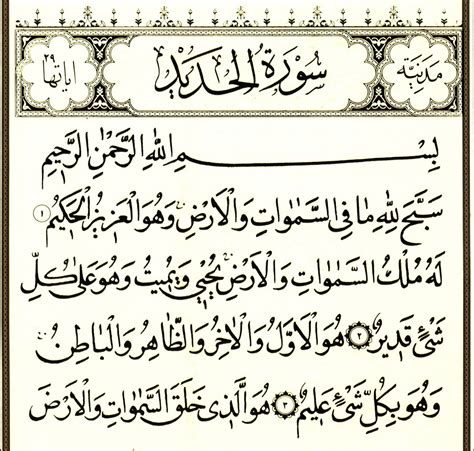 مدنية
سورة الحديد
اياتها ٢٩
بِسْمِ اللهِ الرَّحْمٰنِ الرَّحِيمِ
سَبَّحَ لِلّٰهِ مَا فِي السَّمٰوَاتِ وَالْاَرْضِ وَهُوَ الْعَزِيزُ الْحَكِيمُ ١
لَهُ مُلْكُ السَّمٰوَاتِ وَالْاَرْضِ يُحْيِي وَيُمِيتُ وَهُوَ عَلٰى كُلِّ
شَيْءٍ قَدِيرٌ ٢ هُوَ الْاَوَّلُ وَالْاٰخِرُ وَالظَّاهِرُ وَالْبَاطِنُ
وَهُوَ بِكُلِّ شَيْءٍ عَلِيمٌ ٣ هُوَ الَّذِي خَلَقَ السَّمٰوَاتِ وَالْاَرْضَ